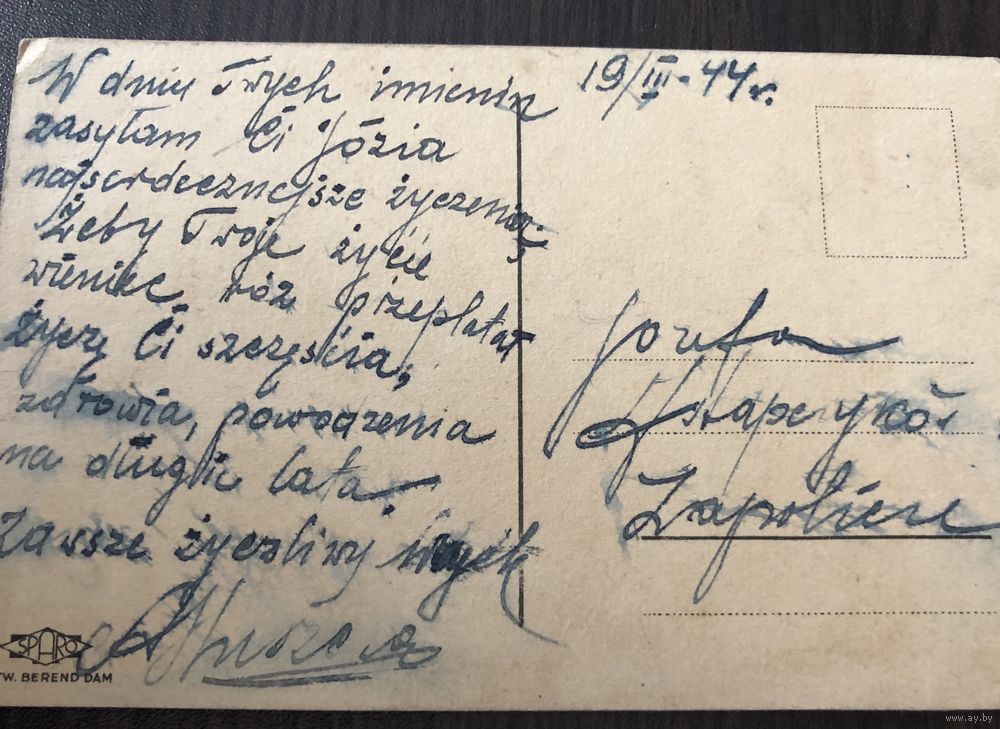 19/III-44r.
W dniu Twych imienin
zasyłam Ci Józia
najserdeczniejsze życzenia
Żeby Twoje życie
wieniec róż przeplatał
życzę Ci szczęścia,
zdrowia, powodzenia
na długie lata.
Zawsze życzliwy
Jozefa
Zapolicze
SPARO
TW. BEREND DAM
www.ay.by